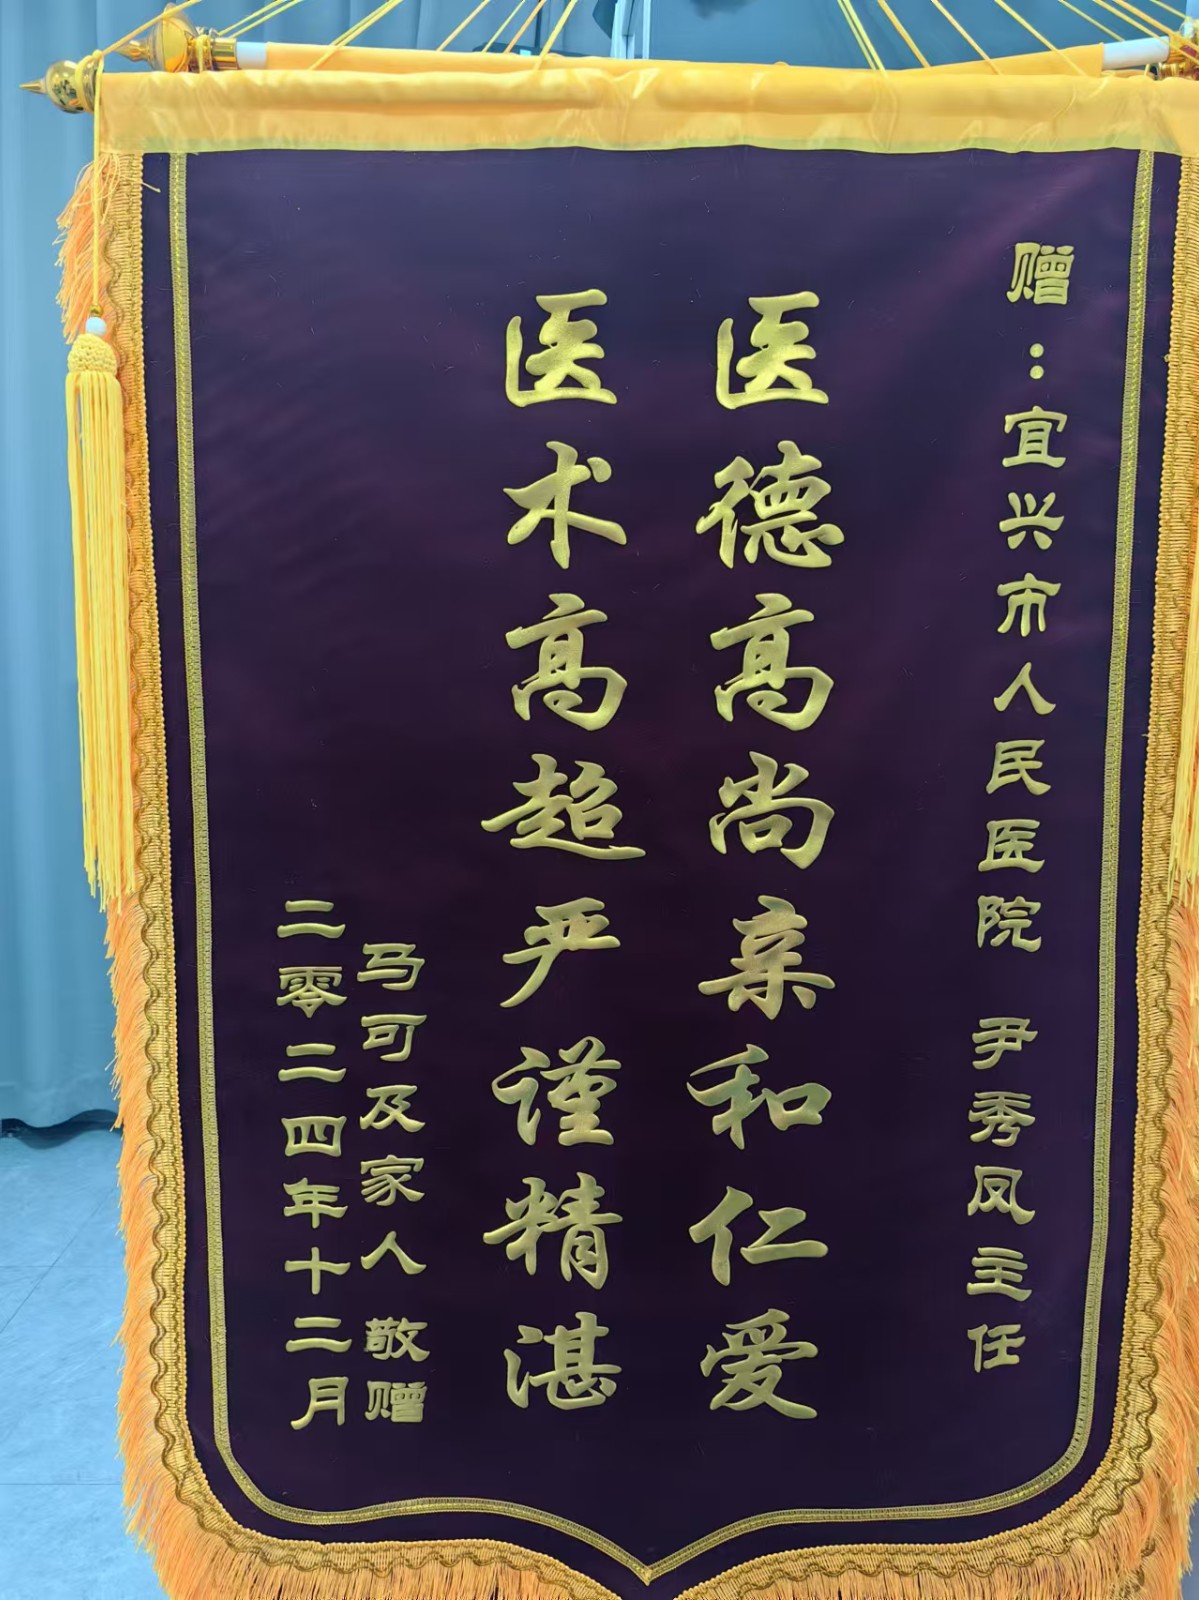 赠：宜兴市人民医院 尹秀凤主任
医德高尚亲和仁爱
医术高超严谨精湛
马可及家人 敬赠
二零二四年十二月